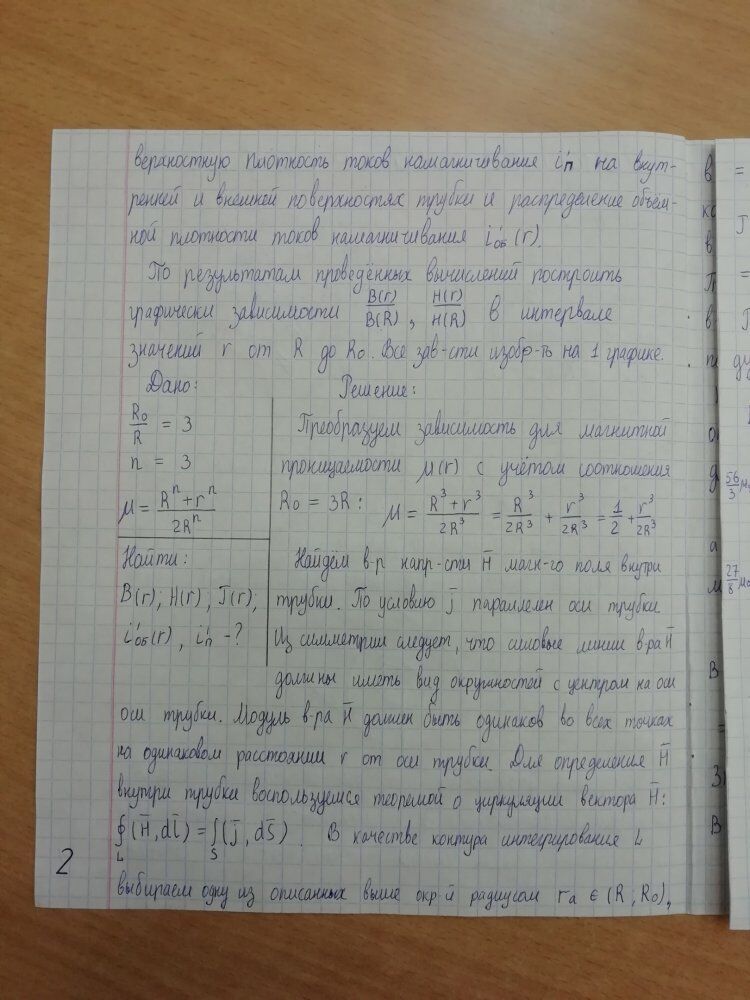 верхностную плотность токов намагничивания i'п на внут-
ренней и внешней поверхностях трубки и распределение объём-
ной плотности токов намагничивания i'об(r).
По результатам проведённых вычислений построить
графически зависимости B(r)/B(R), H(r)/H(R) в интервале
значений r от R до R₀. Все зав-сти изобр-ть на 1 графике.
Дано:
R₀/R = 3
n = 3
μ = (Rⁿ+rⁿ)/2Rⁿ
Найти:
B(r); H(r); J(r);
i'об(r), i'п -?
Решение:
Преобразуем зависимость для магнитной
проницаемости μ(r) с учётом соотношения
R₀ = 3R: μ = (R³+r³)/2R³ = R³/2R³ + r³/2R³ = 1/2 + r³/2R³
Найдём в-р напр-сти H̄ магн-го поля внутри
трубки. По условию j̄ параллелен оси трубки
Из симметрии следует, что силовые линии в-ра H̄
должны иметь вид окружностей с центром на оси
оси трубки. Модуль в-ра H̄ должен быть одинаков во всех точках
на одинаковом расстоянии r от оси трубки. Для определения H̄
внутри трубки воспользуемся теоремой о циркуляции вектора H̄:
∮L (H̄, dl̄) = ∫S (j̄, dS̄). В качестве контура интегрирования L
2
выбираем одну из описанных выше окр-й радиусом rₐ ∈ (R; R₀),
56/3 μ₀
27/8 μ₀